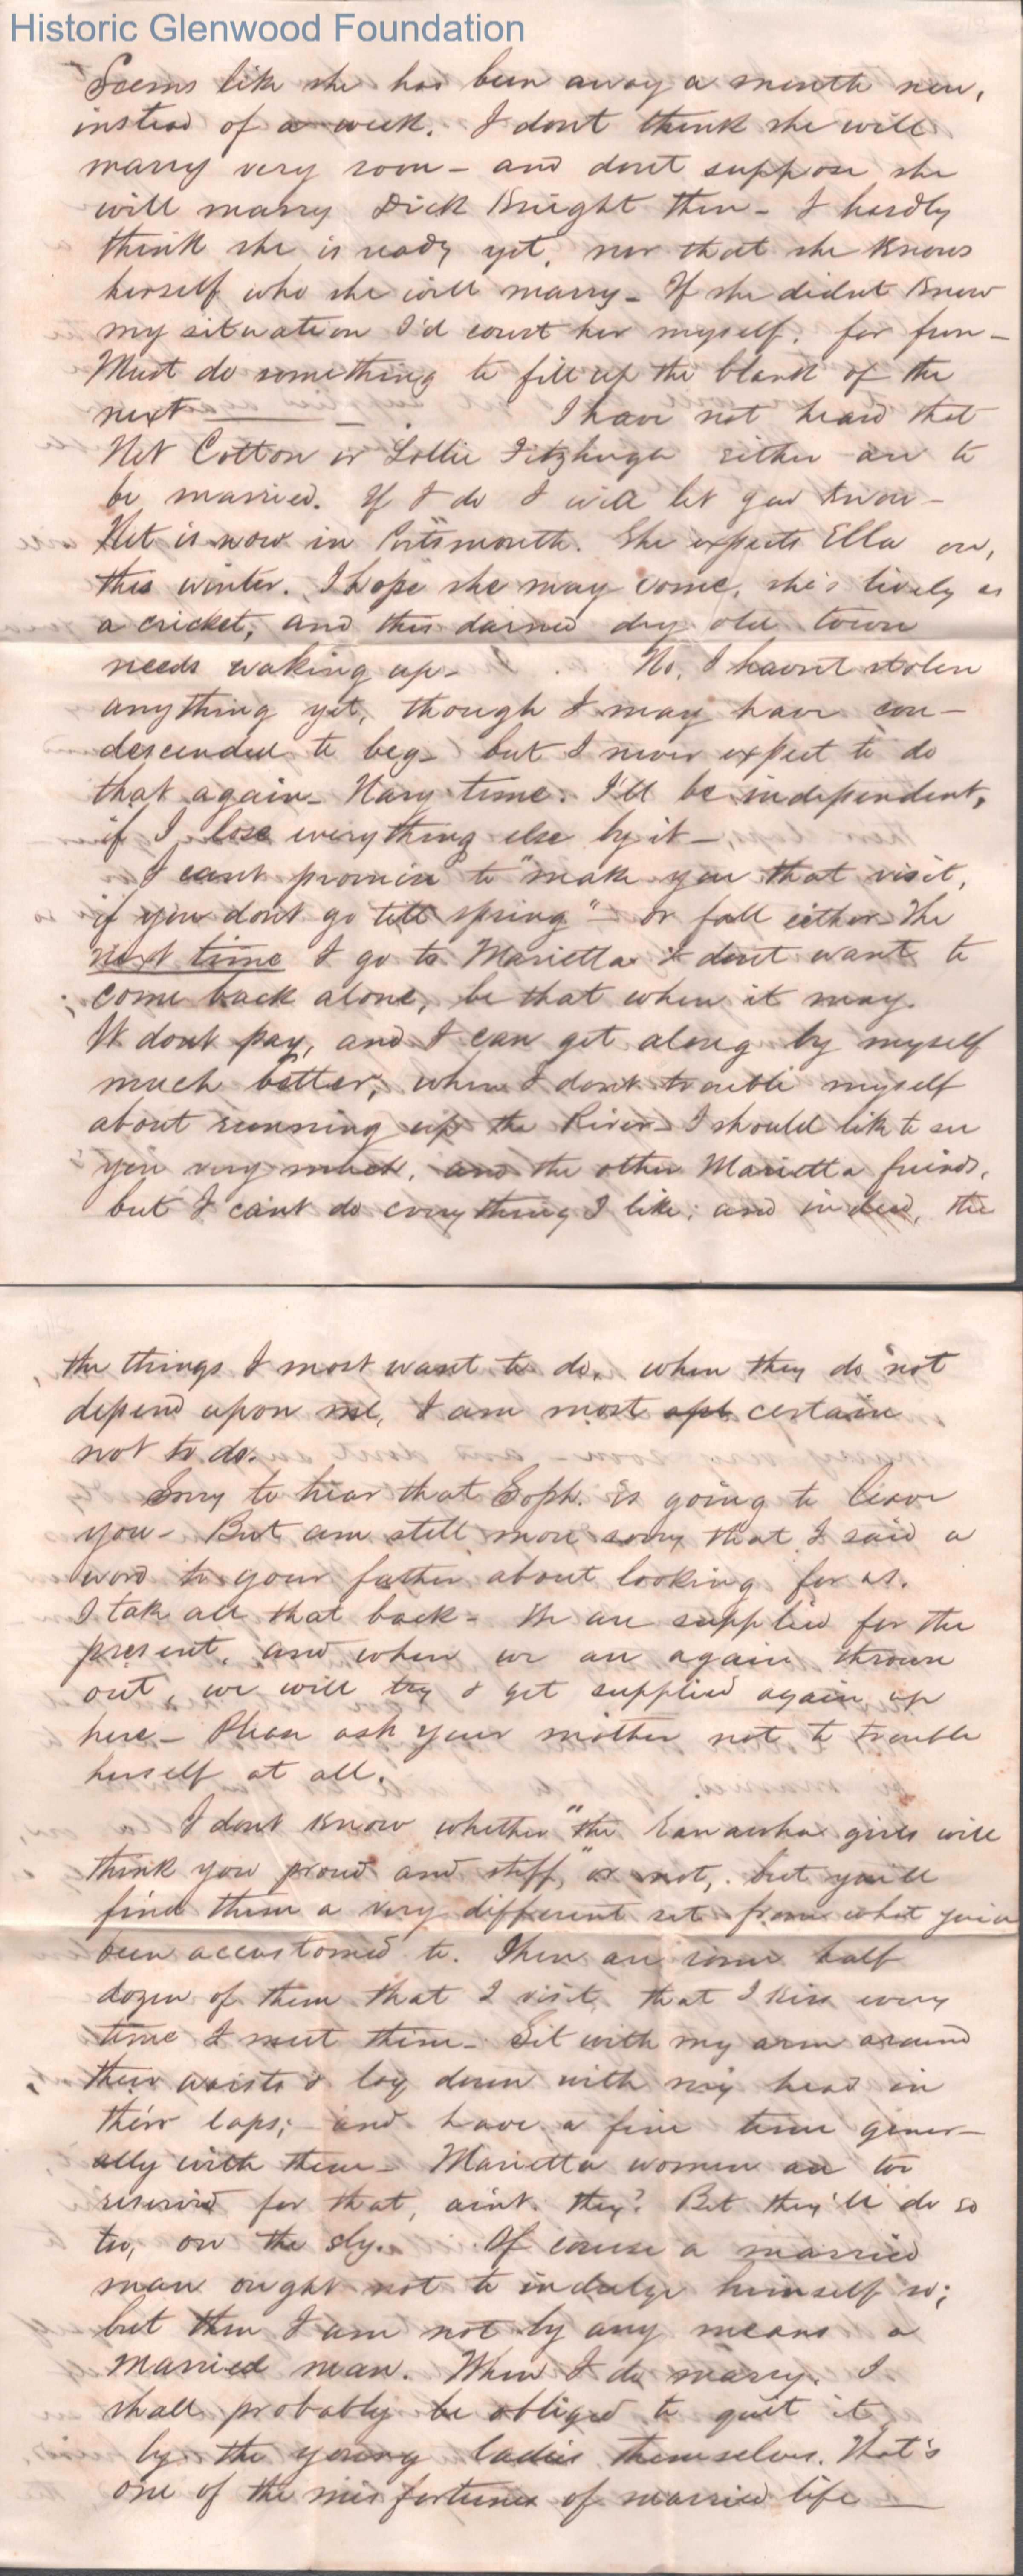 Historic Glenwood Foundation
Seems like she has been away a month now,
instead of a week. I dont think she will
marry very soon - and dont suppose she
will marry Dick Knight then - I hardly
think she is ready yet, nor that she knows
herself who she will marry - If she didnt know
my situation I'd court her myself, for fun -
Must do something to fill up the blank of the
next ——— - I have not heard that
Net Cotton or Lollie Fitzhugh either are to
be married. If I do I will let you know -
Net is now in Portsmouth. She expects Ella on,
this winter. I hope she may come, she's lively as
a cricket, and this darned dry old town
needs waking up - No, I havnt stolen
anything yet, though I may have con-
descended to beg - but I never expect to do
that again - Nary time. I'll be independent,
if I lose everything else by it -
I cant promise to "make you that visit,
if you dont go till spring" - or fall either - The
next time I go to Marietta I dont want to
come back alone, be that when it may.
It dont pay, and I can get along by myself
much better, when I dont trouble myself
about running up the River - I should like to see
you very much, and the other Marietta friends,
but I cant do everything I like; and indeed, the
the things I most want to do, when they do not
depend upon me, I am most apt certain
not to do.
Sorry to hear that Soph. is going to leave
you - But am still more sorry that I said a
word to your father about looking for us.
I take all that back - We are supplied for the
present, and when we are again thrown
out, we will try & get supplied again up
here - Please ask your mother not to trouble
herself at all.
I dont know whether "the Kanawha girls will
think you proud and stiff," or not, but you'll
find them a very different set from what you've
been accustomed to. There are some half
dozen of them that I visit, that I kiss every
time I meet them - Sit with my arm around
their waists & lay down with my head in
their laps; and have a fine time gener-
ally with them - Marietta women are too
reserved for that, aint they? But they'll do so
too, on the sly. Of course a married
man ought not to indulge himself so;
but then I am not by any means a
married man. When I do marry, I
shall probably be obliged to quit it
by the young ladies themselves. That's
one of the misfortunes of married life —